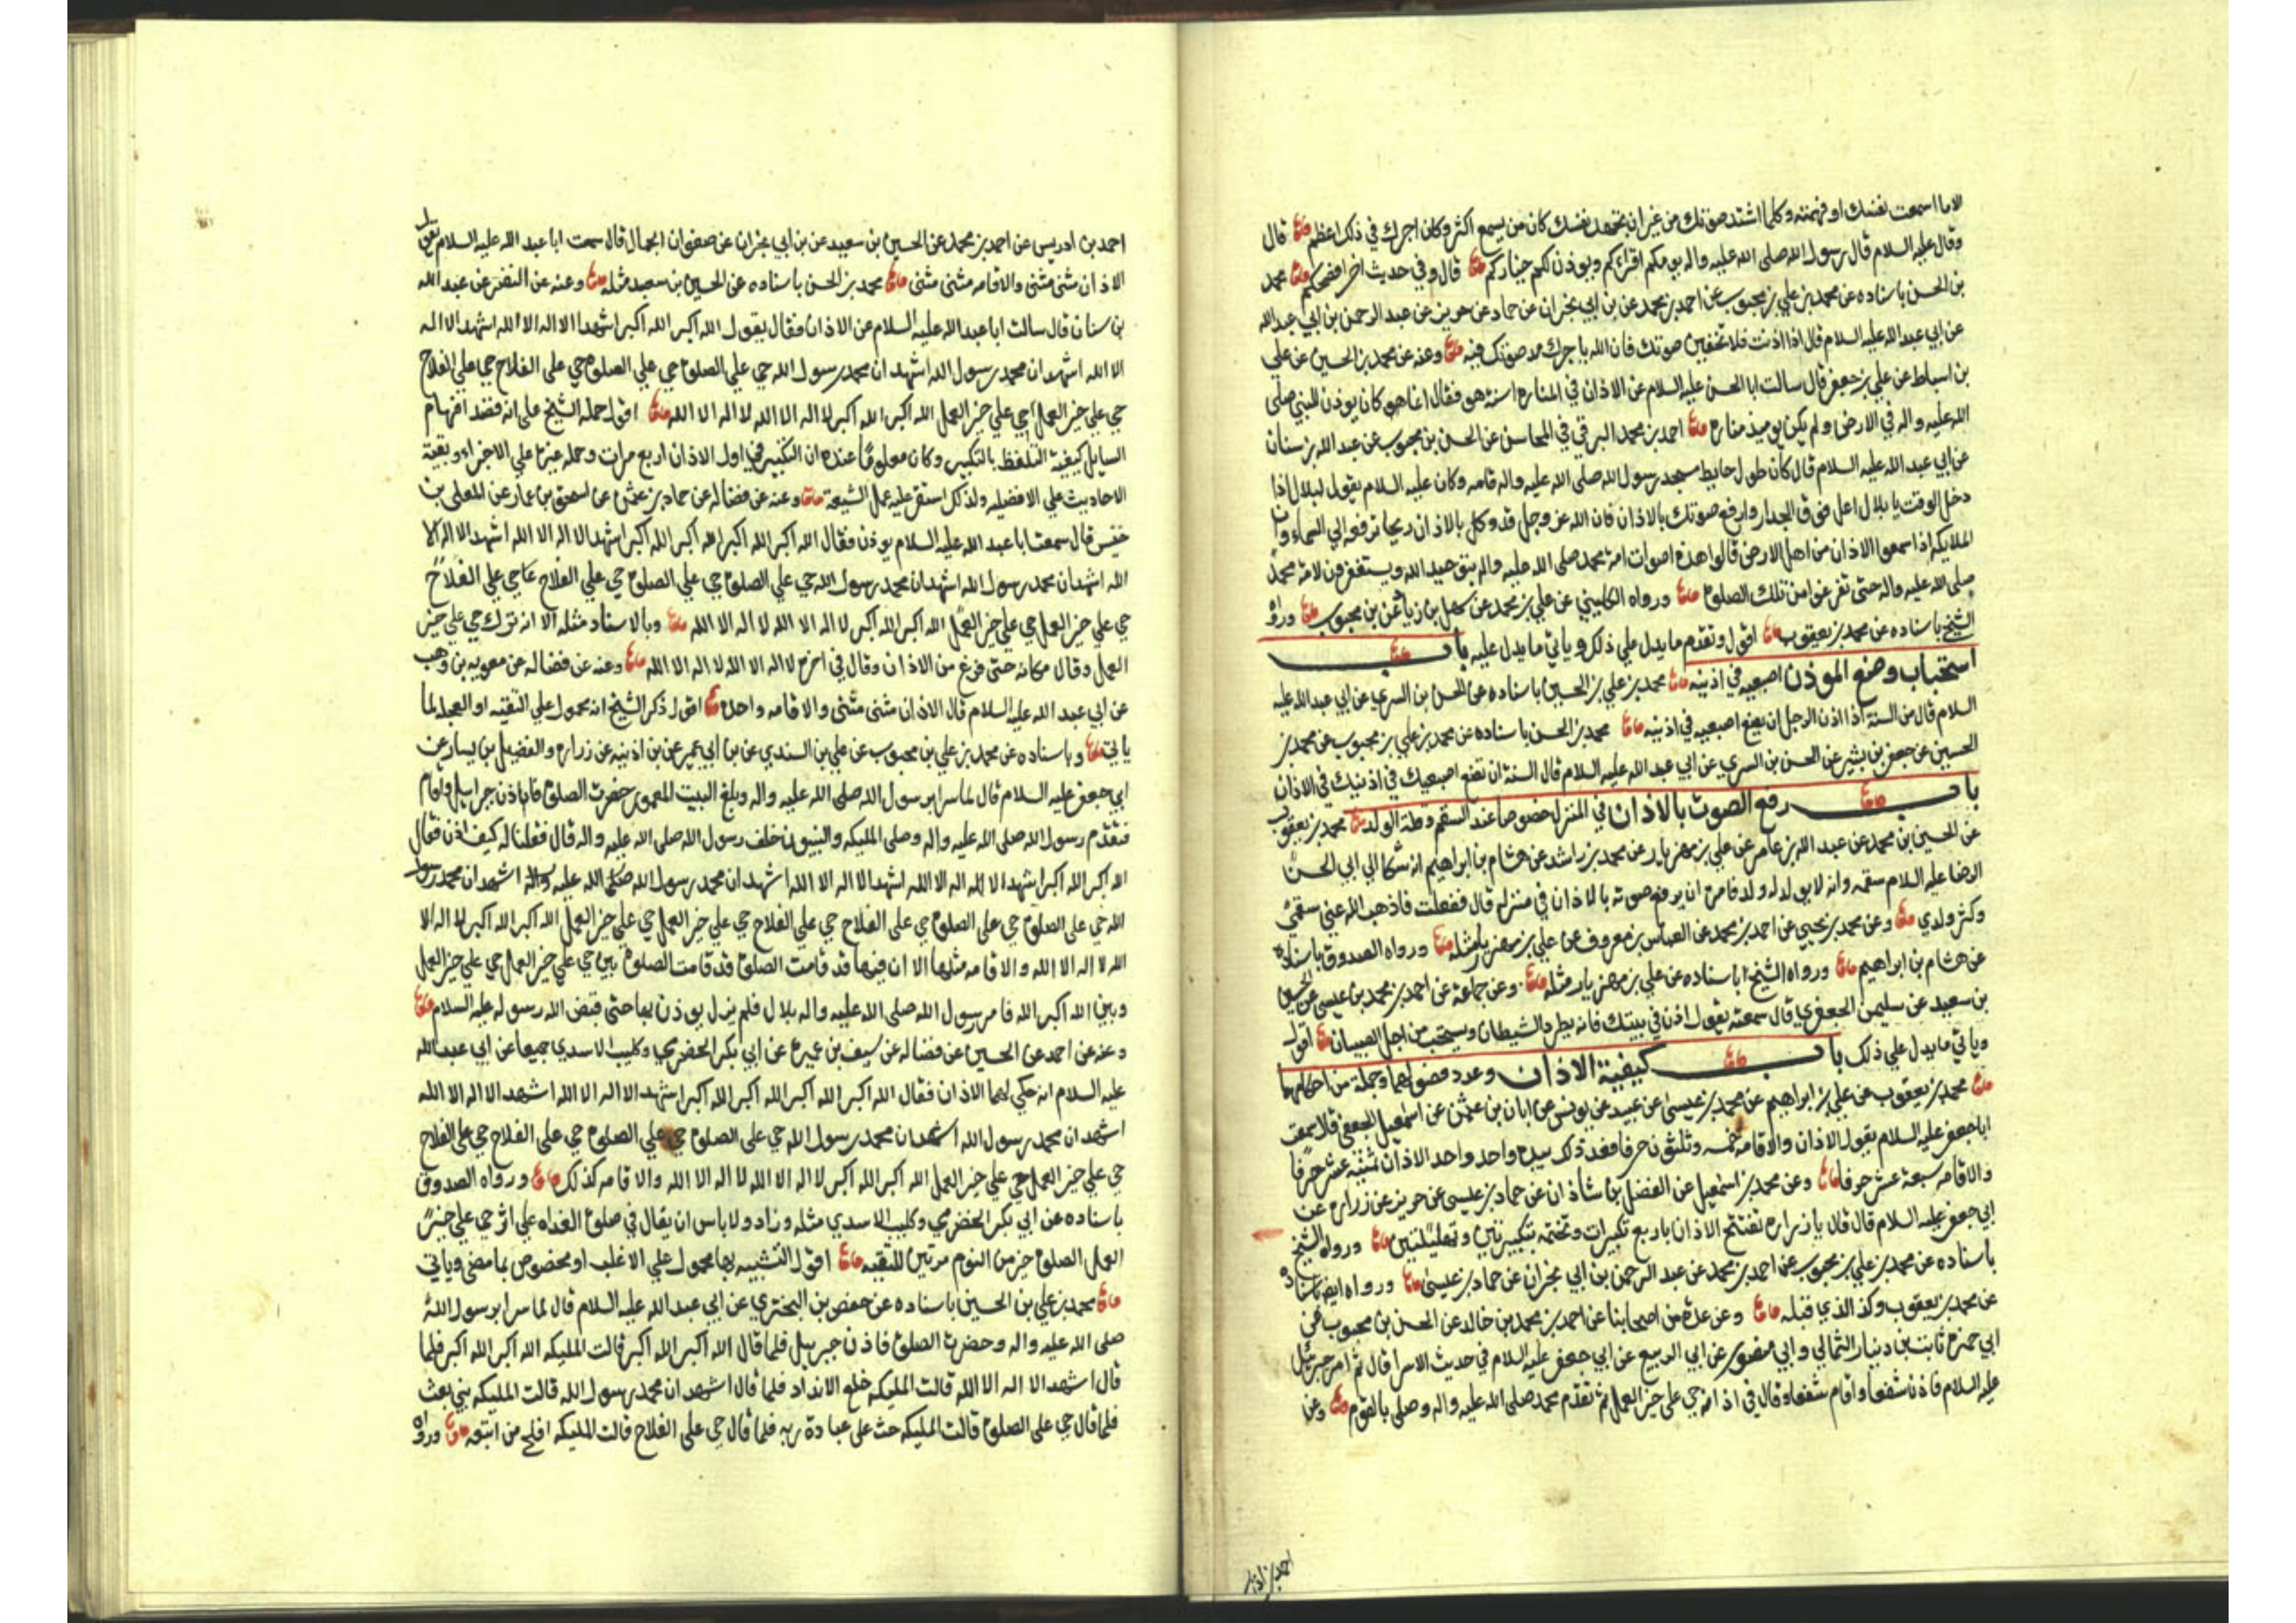 الا ما اسمعت نفسك او فهمته وكلما اشتد صوتك من غير ان تجهد نفسك كان من يسمع اكثر وكان اجرك في ذلك اعظم قال
وقال عليه السلام قال رسول الله صلى الله عليه واله يؤمكم اقراكم ويوذن لكم خياركم قال وفي حديث اخر افصحكم محمد
بن الحسن باسناده عن محمد بن علي بن محبوب عن احمد بن محمد عن بن ابي نجران عن حماد عن حريز عن عبد الرحمن بن ابي عبد الله
عن ابي عبد الله عليه السلام قال اذا اذنت فلا تخفين صوتك فان الله ياجرك مد صوتك فيه وعنه عن محمد بن الحسين عن علي
بن اسباط عن علي بن جعفر قال سالت ابا الحسن عليه السلام عن الاذان في المناره اسنة هو فقال انما كان يوذن للنبي صلى
الله عليه واله في الارض ولم يكن يوميذ مناره احمد بن محمد البرقي في المحاسن عن الحسن بن محبوب عن عبد الله بن سنان
عن ابي عبد الله عليه السلام قال كان طول حايط مسجد رسول الله صلى الله عليه واله قامه وكان عليه السلام يقول لبلال اذا
دخل الوقت يا بلال اعل فوق الجدار وارفع صوتك بالاذان فان الله عز وجل قد وكل بالاذان ريحا ترفعه الى السماء وان
الملايكه اذا سمعوا الاذان من اهل الارض قالوا هذه اصوات امة محمد صلى الله عليه واله بتوحيد الله ويستغفرون لامة محمد
صلى الله عليه واله حتى تفرغوا من تلك الصلوة ورواه الكليني عن علي بن محمد عن سهل بن زياد عن بن محبوب ورواه
الشيخ باسناده عن محمد بن يعقوب اقول وتقدم ما يدل على ذلك وياتي ما يدل عليه باب
استحباب وضع الموذن اصبعيه في اذنيه محمد بن علي بن الحسين باسناده عن الحسن بن السري عن ابي عبد الله عليه
السلام قال من السنة اذا اذن الرجل ان يضع اصبعيه في اذنيه محمد بن الحسن باسناده عن محمد بن علي بن محبوب عن محمد بن
الحسين عن جعفر بن بشير عن الحسن بن السري عن ابي عبد الله عليه السلام قال السنة ان تضع اصبعيك في اذنيك في الاذان
باب رفع الصوت بالاذان في المنزل خصوصا عند السقم وقلة الولد محمد بن يعقوب
عن الحسين بن محمد عن عبد الله بن عامر عن علي بن مهزيار عن محمد بن راشد عن هشام بن ابراهيم انه شكا الى ابي الحسن
الرضا عليه السلام سقمه وانه لا يولد له ولد فامره ان يرفع صوته بالاذان في منزله قال ففعلت فاذهب الله عني سقمي
وكثر ولدي وعن محمد بن يحيى عن احمد بن محمد عن العباس بن معروف عن علي بن مهزيار مثله ورواه الصدوق باسناده
عن هشام بن ابراهيم ورواه الشيخ باسناده عن علي بن مهزيار مثله وعن جماعة عن احمد بن محمد بن عيسى عن الحسين
بن سعيد عن سليمن الجعفري قال سمعته يقول اذن في بيتك فانه يطرد الشيطان ويستحب من اجل الصبيان اقول
وياتي ما يدل على ذلك باب كيفية الاذان وعدد فصولهما وجملة من احكامهما
محمد بن يعقوب عن علي بن ابراهيم عن محمد بن عيسى عن عبيد عن يونس عن ابان بن عثمن عن اسمعيل الجعفي قال سمعت
ابا جعفر عليه السلام يقول الاذان والاقامه خمسه وثلثون حرفا فعد ذلك بيده واحد واحد الاذان ثمنيه عشر حرفا
والاقامه سبعة عشر حرفا وعن محمد بن اسمعيل عن الفضل بن شاذان عن حماد بن عيسى عن حريز عن زراره عن
ابي جعفر عليه السلام قال قال يا زراره تفتتح الاذان باربع تكبيرات وتختمه بتكبيرتين وتهليلتين ورواه الشيخ
باسناده عن محمد بن علي بن محبوب عن احمد بن محمد عن عبد الرحمن بن ابي نجران عن حماد بن عيسى ورواه ايضا باسناده
عن محمد بن يعقوب وكذ الذي قبله وعن عدة من اصحابنا عن احمد بن محمد بن خالد عن الحسن بن محبوب عن
ابي حمزه ثابت بن دينار الثمالي وابي منصور عن ابي الربيع عن ابي جعفر عليه السلام في حديث الاسرا قال ثم امر جبرئيل
عليه السلام فاذن شفعا واقام شفعا وقال في اذانه حي على خير العمل ثم تقدم محمد صلى الله عليه واله وصلى بالقوم وعن
احمد بن ادريس
احمد بن ادريس عن احمد بن محمد عن الحسين بن سعيد عن بن ابي نجران عن صفوان الجمال قال سمعت ابا عبد الله عليه السلام يقول
الاذان مثنى مثنى والاقامه مثنى مثنى محمد بن الحسن باسناده عن الحسين بن سعيد مثله وعنه عن النضر عن عبد الله
بن سنان قال سالت ابا عبد الله عليه السلام عن الاذان فقال يقول الله اكبر الله اكبر اشهد الا اله الا الله اشهد الا اله
الا الله اشهد ان محمد رسول الله اشهد ان محمد رسول الله حي على الصلوة حي على الصلوة حي على الفلاح حي على الفلاح
حي على خير العمل حي على خير العمل الله اكبر الله اكبر لا اله الا الله لا اله الا الله اقول حمله الشيخ على انه قصد افهام
السايل كيفية التلفظ بالتكبير وكان معلوما عنده ان التكبير في اول الاذان اربع مرات وحمله غيره على الاجزاء وبقية
الاحاديث على الافضليه ولذلك استقر عليه عمل الشيعة وعنه عن فضاله عن حماد بن عثمن عن اسحق بن عمار عن المعلى بن
خنيس قال سمعت ابا عبد الله عليه السلام يوذن فقال الله اكبر الله اكبر الله اكبر الله اكبر اشهد الا اله الا الله اشهد الا اله الا
الله اشهد ان محمد رسول الله اشهد ان محمد رسول الله حي على الصلوة حي على الصلوة حي على الفلاح حي على الفلاح
حي على خير العمل حي على خير العمل الله اكبر الله اكبر لا اله الا الله لا اله الا الله وبالاسناد مثله الا انه ترك حي على خير
العمل وقال مكانه حتى فرغ من الاذان وقال في اخره لا اله الا الله لا اله الا الله وعنه عن فضاله عن معويه بن وهب
عن ابي عبد الله عليه السلام قال الاذان مثنى مثنى والاقامه واحده اقول ذكر الشيخ انه محمول على التقيه او العجله لما
ياتي وباسناده عن محمد بن علي بن محبوب عن علي بن السندي عن بن ابي عمير عن بن اذينه عن زراره والفضيل بن يسار عن
ابي جعفر عليه السلام قال لما اسرا برسول الله صلى الله عليه واله وبلغ البيت المعمور حضرت الصلوة فاذن جبرايل واقام
فتقدم رسول الله صلى الله عليه واله وصلى المليكه والنبيون خلف رسول الله صلى الله عليه واله قال فقلنا له كيف اذن فقال
الله اكبر الله اكبر اشهد الا اله الا الله اشهد الا اله الا الله اشهد ان محمد رسول الله صلى الله عليه واله اشهد ان محمد رسول
الله حي على الصلوة حي على الصلوة حي على الفلاح حي على الفلاح حي على خير العمل حي على خير العمل الله اكبر الله اكبر لا اله الا
الله لا اله الا الله والاقامه مثلها الا ان فيها قد قامت الصلوة قد قامت الصلوة بين حي على خير العمل حي على خير العمل
وبين الله اكبر الله فامر رسول الله صلى الله عليه واله بلال فلم يزل يوذن بها حتى قبض الله رسوله عليه السلام
وعنه عن احمد عن الحسين عن فضاله عن سيف بن عميره عن ابي بكر الحضرمي وكليب الاسدي جميعا عن ابي عبد الله
عليه السلام انه حكى لهما الاذان فقال الله اكبر الله اكبر الله اكبر الله اكبر اشهد الا اله الا الله اشهد الا اله الا الله
اشهد ان محمد رسول الله اشهد ان محمد رسول الله حي على الصلوة حي على الصلوة حي على الفلاح حي على الفلاح
حي على خير العمل حي على خير العمل الله اكبر الله اكبر لا اله الا الله لا اله الا الله والاقامه كذلك ورواه الصدوق
باسناده عن ابي بكر الحضرمي وكليب الاسدي مثله وزاد ولا باس ان يقال في صلوة الغداه على اثر حي على خير
العمل الصلوة خير من النوم مرتين للتقيه اقول التشبيه بها محمول على الاغلب او مخصوص بما مضى وياتي
محمد بن علي بن الحسين باسناده عن حفص بن البختري عن ابي عبد الله عليه السلام قال لما اسرا برسول الله
صلى الله عليه واله وحضرت الصلوة فاذن جبرييل فلما قال الله اكبر الله اكبر قالت المليكه الله اكبر الله اكبر فلما
قال اشهد الا اله الا الله قالت المليكه خلع الانداد فلما قال اشهد ان محمد رسول الله قالت المليكه نبي بعث
فلما قال حي على الصلوة قالت المليكه حث على عبادة ربه فلما قال حي على الفلاح قالت المليكه افلح من اتبعه ورواه